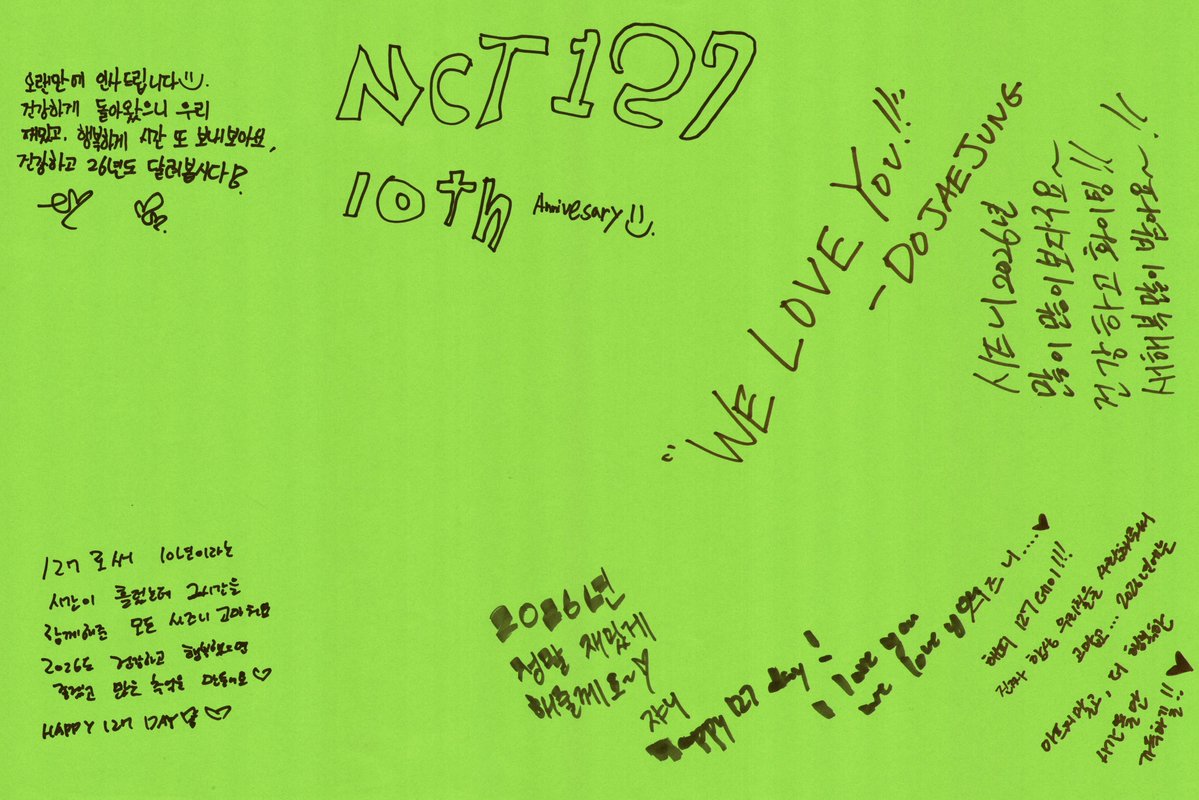 NCT 127
10th Annivesary
오랜만에 인사드립니다
건강하게 돌아왔으니 우리
재밌고, 행복하게 시간 또 보내보아요,
건강하고 26년도 달려봅시다
"WE LOVE YOU!!!"
-DOJAEJUNG
시즈니 2026년
많이 많이 보자구용~
건강하고 화이팅!!
새해복 많이 받아용~!!
127로써 10년이라는
시간이 흘렀는데 그시간을
함께해준 모든 시즈니 고마워요
2026도 건강하고 행복했으면
즐겁고 많은 추억을 만들어요
HAPPY 127 DAY
2026년
정말 재밌게
해줄께요~
쟈니
Happy 127 day!
I love you
we love you 시즈니....
해피 127데이!!!
진짜 항상 우리칠을 사랑해줘서
고맙고... 2026년에는
아프지말고, 더 행복한
시간들만
가득하길!!